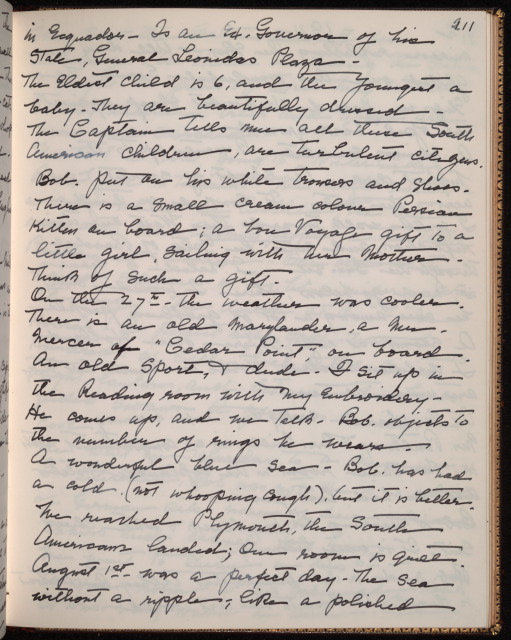 211
in Equador - Is an Ex. Governor of his
State, General Leonidas Plaza -
The Eldest child is 6, and the Youngest a
baby - They are beautifully dressed
The Captain tells me all these South
American children, are turbulent citizens.
Bob. put on his white trousers and shoes.
There is a small cream colour Persian
Kitten on board; a bon Voyage gift to a
little girl, sailing with her Mother.
Think of such a gift.
On the 27th - the weather was cooler.
There is an old Marylander, a Mr.
Mercer of "Cedar Point" on board.
An old Sport, & dude - I sit up in
the Reading room with my Embroidery -
He comes up, and we talk - Bob. objects to
the number of rings he wears -
A wonderful blue sea - Bob. has had
a cold. (not whooping cough), but it is better.
We reached Plymouth, the South
Americans landed; Our room is quiet.
August 1st - was a perfect day - The sea
without a ripple; like a polished